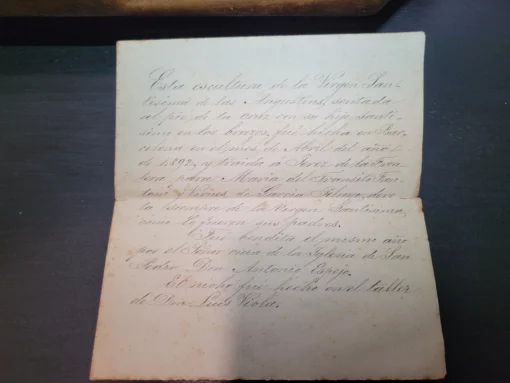 Esta escultura de la Virgen San-
tísima de las Angustias, sentada
al pié de la cruz con su hijo santí-
simo en los brazos, fué hecha en Bar-
celona en el mes de Abril del año
de 1.892, y traida a Jerez de la Fron-
tera para María del Tránsito
y Núñez de García Pelayo, devo-
ta siempre de la Virgen Santísima,
como lo fueron sus padres.
Fué bendita el mismo año
por el Señor cura de la Iglesia de San
Pedro, Don Antonio Espejo.
El nicho fué hecho en el taller
de Don Luis Viola.